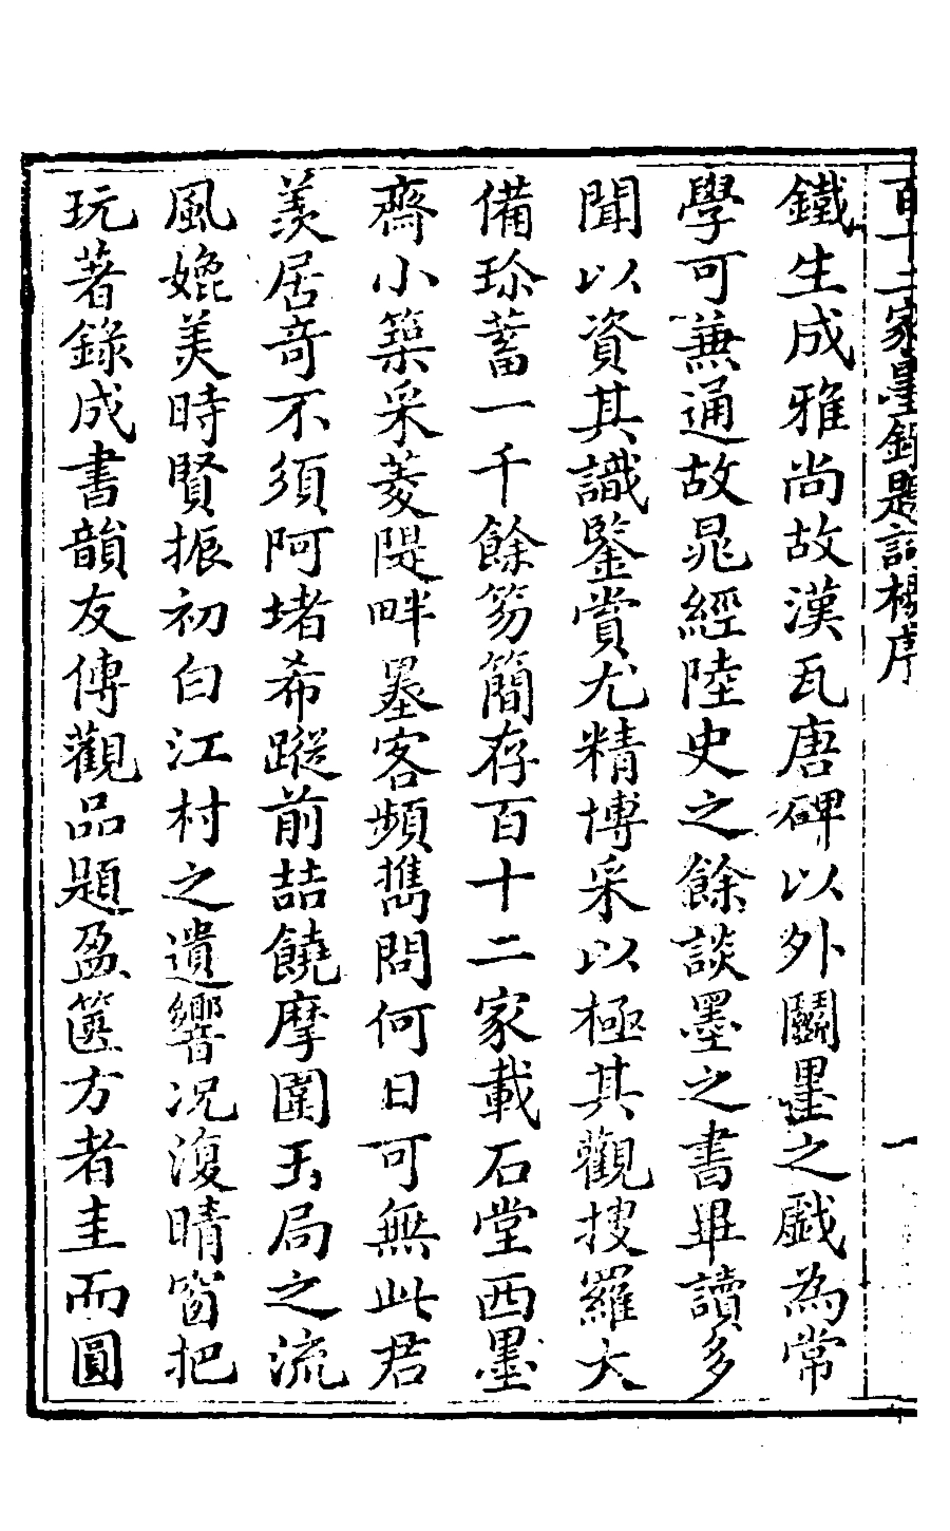 百十二家墨錄題詞 序
一
鐵生成雅尚故漢瓦唐碑以外鬭墨之戲為常
學可兼通故晁經陸史之餘談墨之書畢讀多
聞以資其識鑒賞尤精博采以極其觀搜羅大
備珍蓄一千餘笏簡存百十二家載石堂西墨
齋小築采菱隄畔墨客頻攜問何日可無此君
羨居奇不須阿堵希蹤前喆饒摩圍玉局之流
風媲美時賢振初白江村之遺響況復晴窗把
玩著錄成書韻友傳觀品題盈篋方者圭而圓